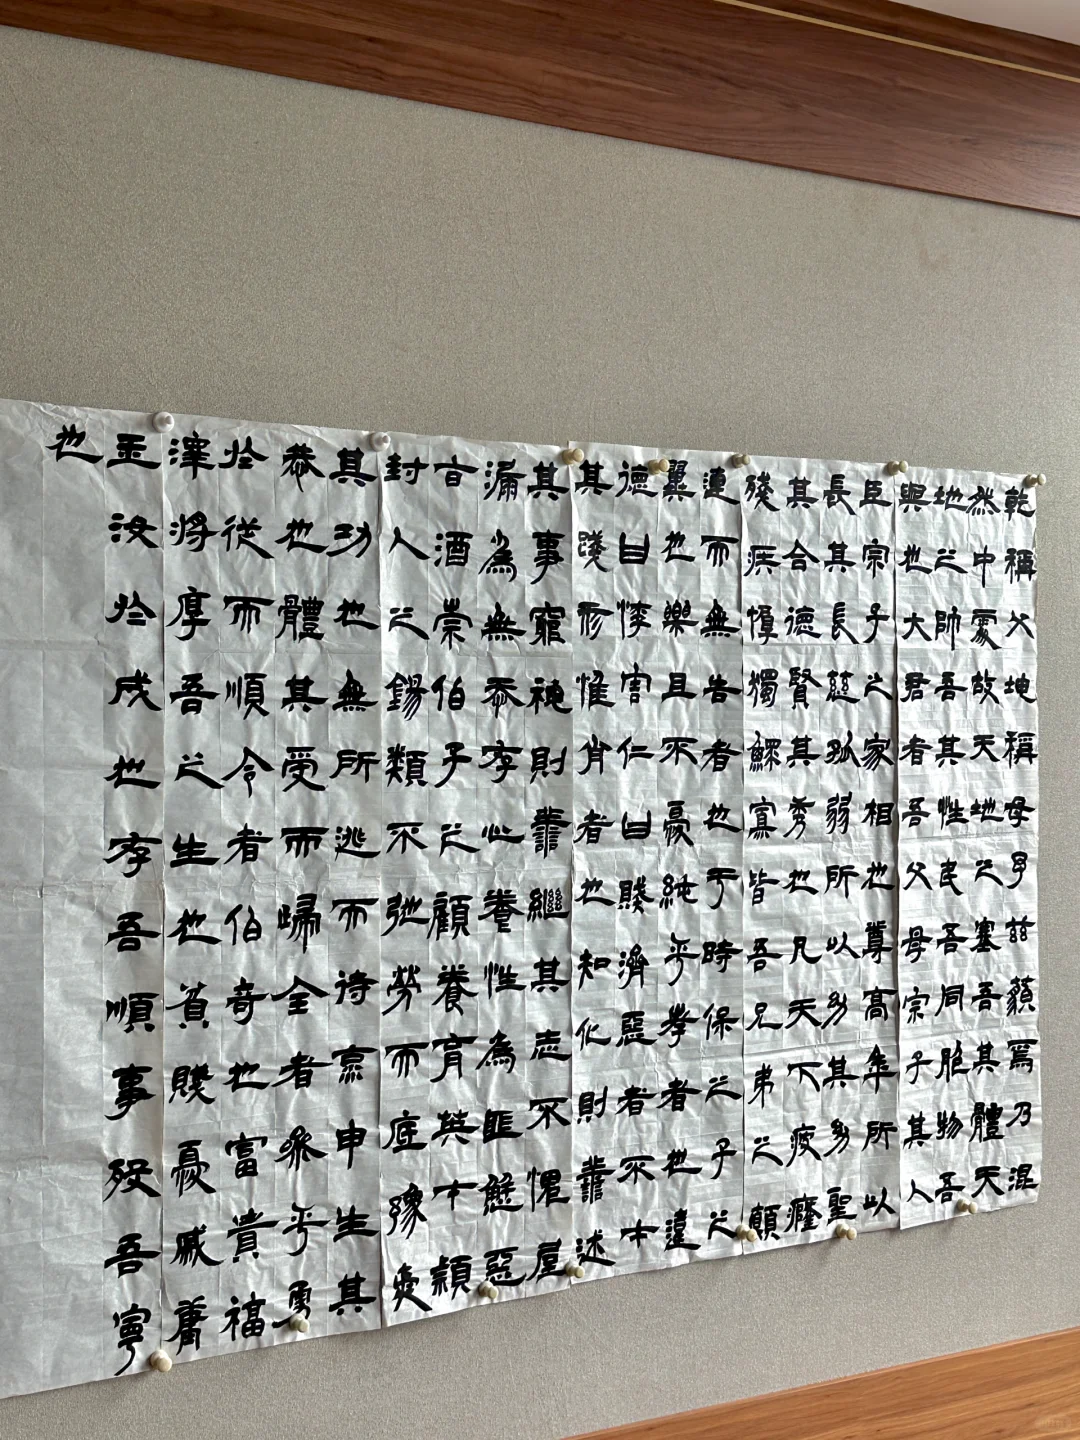 乾稱父坤稱母予茲藐焉乃混
然中處故天地之塞吾其體天
地之帥吾其性民吾同胞物吾
與也大君者吾父母宗子其人
臣宗子之家相也尊高年所以
長其長慈孤弱所以幼其幼聖
其合德賢其秀也凡天下疲癃
殘疾惸獨鰥寡皆吾兄弟之顛
連而無告者也于時保之子之
翼也樂且不憂純乎孝者也違
德曰悖害仁曰賊濟惡者不才
其踐形惟肖者也知化則善述
其事窮神則善繼其志不愧屋
漏為無忝存心養性為匪懈惡
旨酒崇伯子之顧養育英才潁
封人之錫類不弛勞而底豫舜
其功也無所逃而待烹申生其
恭也體其受而歸全者參乎勇
於從而順令者伯奇也富貴福
澤將厚吾之生也貧賤憂戚庸
玉汝於成也存吾順事歿吾寧
也